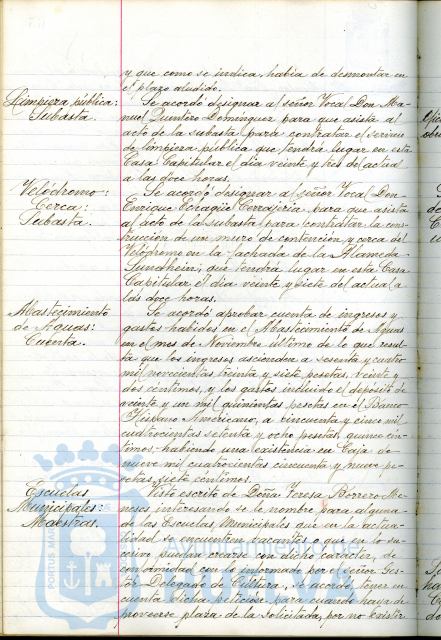 y que como se indica, habia de desmontar en
el plazo aludido.
Limpieza pública:
Subasta.
Se acordó designar al señor Vocal Don Ma-
nuel Quintero Dominguez para que asista al
acto de la subasta para contratar el servicio
de limpieza pública que tendrá lugar en esta
Casa Capitular el dia veinte y tres del actual
a las doce horas.
Velódromo:
Cerca:
Subasta.
Se acordó designar al señor Vocal Don
Enrique Echagüe Cerrajeria para que asista
al acto de la subasta para contratar la cons-
trucción de un muro de contención y cerca del
Velódromo en la fachada de la Alameda
Sundheim, que tendrá lugar en esta Casa
Capitular el dia veinte y siete del actual a
las doce horas.
Abastecimiento
de Aguas:
Cuenta.
Se acordó aprobar cuenta de ingresos y
gastos habidos en el Abastecimiento de Aguas
en el mes de Noviembre último de la que resul-
ta que los ingresos ascendien a sesenta y cuatro
mil novecientas treinta y siete pesetas, veinte y
dos centimos, y los gastos incluido el depósito de
veinte y un mil quinientas pesetas en el Banco
Hispano Americano, a cincuenta y cinco mil
cuatrocientas setenta y ocho pesetas, quince cén-
timos, habiendo una existencia en Caja de
nueve mil cuatrocientas cincuenta y nueve pe-
setas, siete centimos.
Escuelas
Municipales:
Maestras.
Visto escrito de Doña Teresa Borrero Me-
neses interesando se le nombre para alguna
de las Escuelas Municipales que en la actua-
lidad se encuentran vacantes o que en lo su-
cesivo puedan crearse con dicho carácter, de
conformidad con lo informado por el señor Ges-
tor Delegado de Cultura, se acordó, tener en
cuenta dicha peticion para cuando haya de
proveerse plaza de la solicitada, por no existir